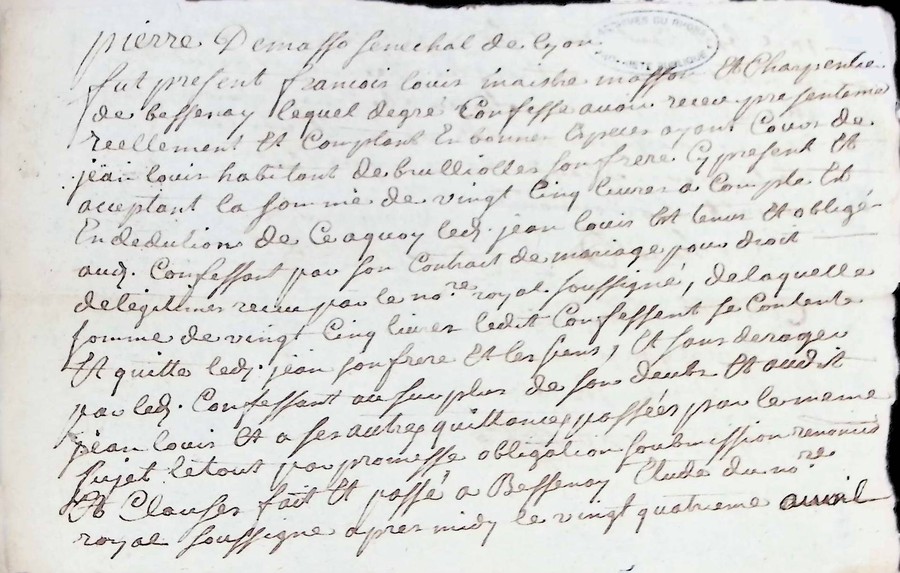 pierre Demasso senechal de Lyon
fut present francois louis maistre masson et Charpentie
de bessenay lequel de gre Confesse avoir receu presenteme
reellement et Comptant En bonnes Especes ayant Cours de
jean louis habitant de brulliolles son frere Cy present et
acceptant la somme de vingt Cinq livres a Compte Et
En dedution de Ce aquoy led. jean louis Est tenus et obligé
aud. Confessant par son Contrait de mariage pour droit
de legitimes receu par le no.re royal soussigné, de laquelle
somme de vingt Cinq livres ledit Confessent se Contente
Et quitte led. jean son frere et les siens, et sans deroger
par led. Confessant au surplus de son deubt Et audit
jean louis Et a ses autres quittances passées par le meme
sujet le tout par promesse obligation soubmission renoncia
Et Clauses fait Et passé a Bessenay Etude du no.re
royal soussigne apres midy le vingt quatrieme avril